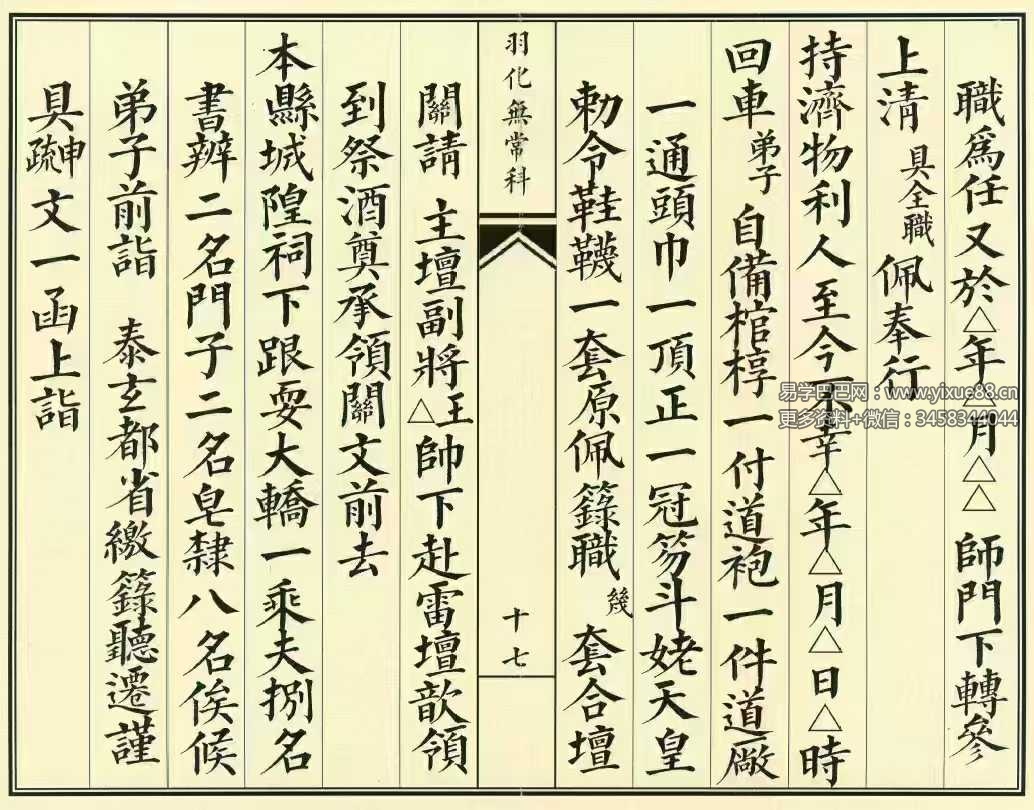 職爲任又於△年△月△△　師門下轉參
上清　具全職　佩奉行
持濟物利人至今不幸△年△月△日△時
回車弟子　自備棺椁一付道袍一件道廠
一通頭巾一頂正一冠笏斗姥天皇
勅令鞋韈一套原佩籙職幾套合壇
羽化無常科
十七
關請　主壇副將王△帥下赴雷壇歆領
到祭酒奠承領關文前去
本縣城隍祠下跟耍大轎一乘夫捌名
書辨二名門子二名皂隸八名俟候
弟子前詣　泰玄都省繳籙聽遷謹
具申疏文一函上詣
易学巴巴网：www.yixue88.cn
更多资料+微信：3458344044